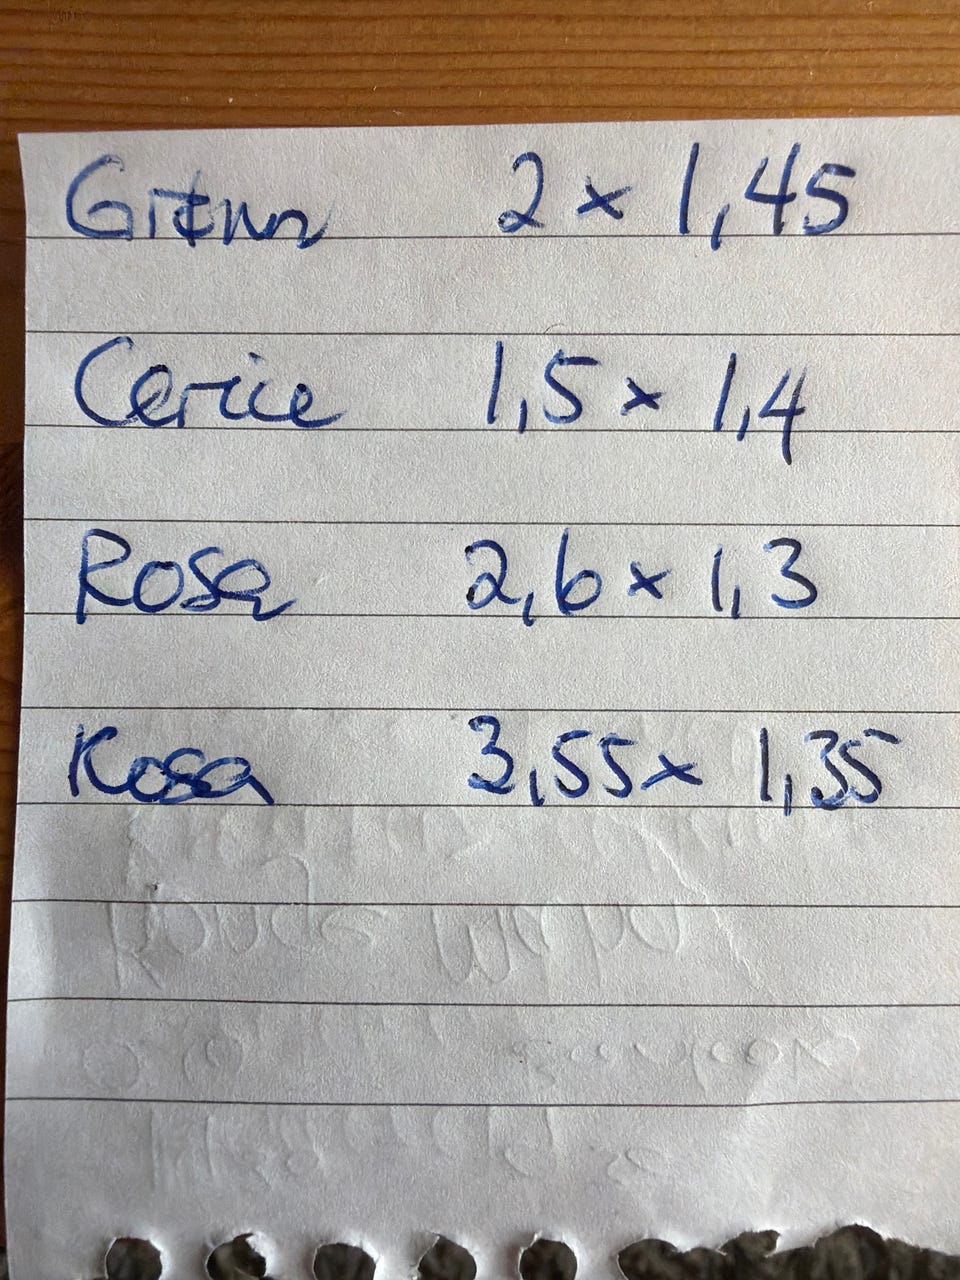 Grønn 2 x 1,45
Cerice 1,5 x 1,4
Rosa 2,6 x 1,3
Rosa 3,55 x 1,35